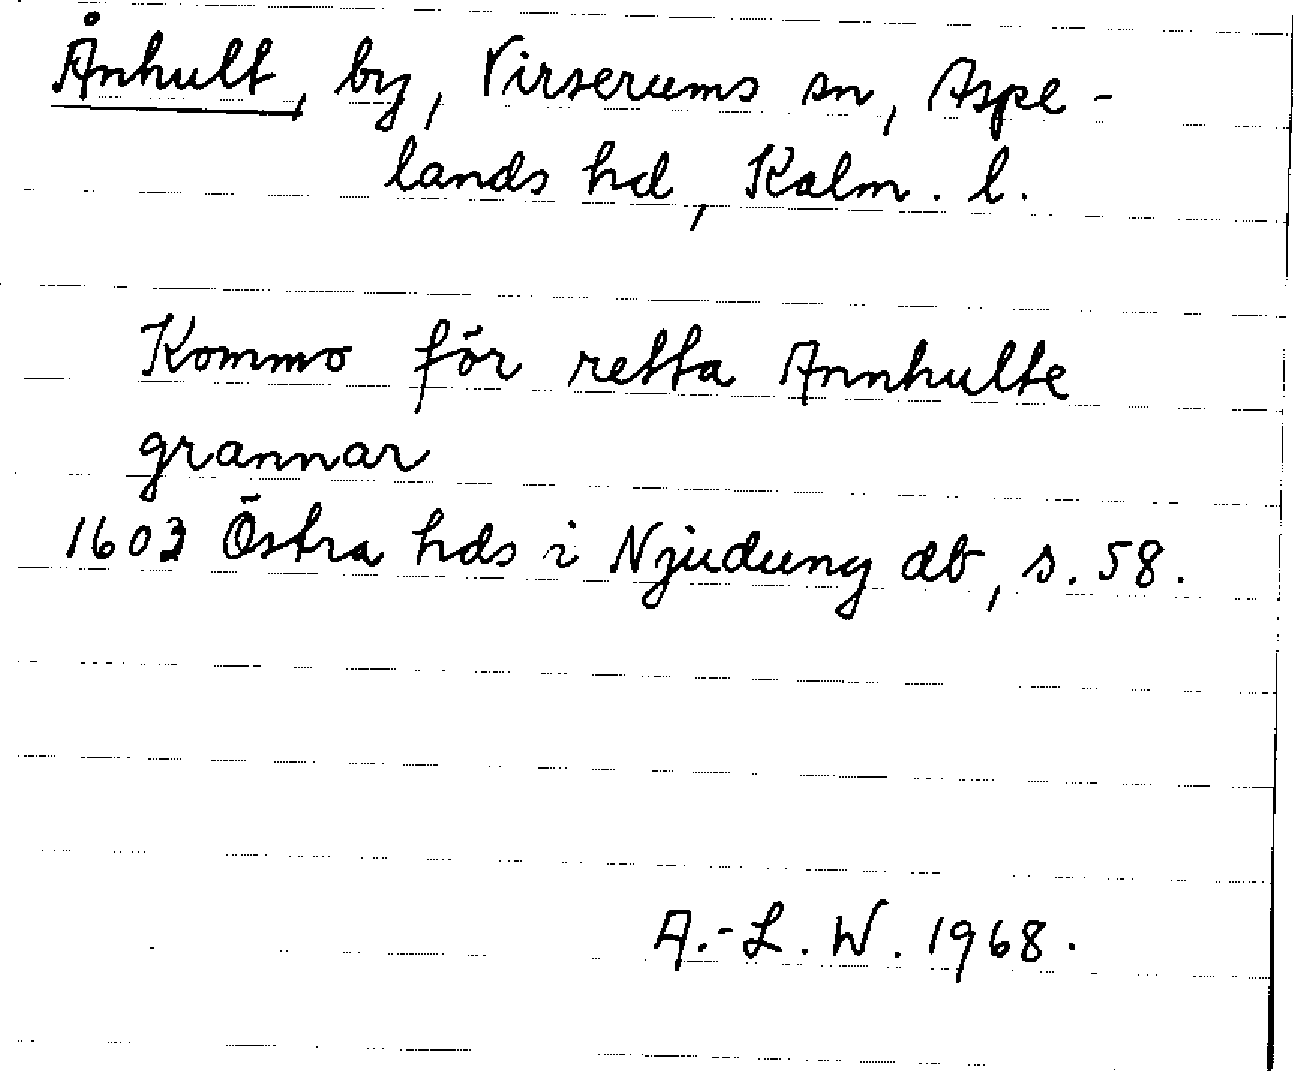 Ånhult, by, Virserums sn, Aspe-
lands hd, Kalm. l.
Kommo för retta Annhulte
grannar
1603 Östra hds i Njudung db, s. 58.
A.-L. W. 1968.